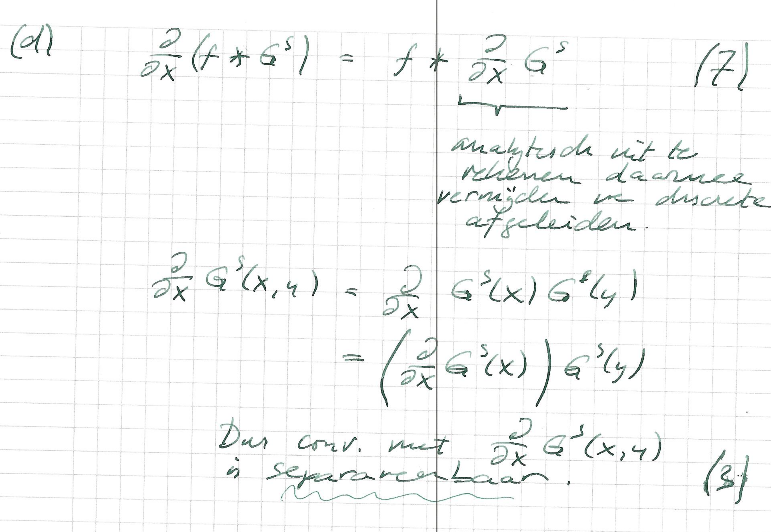 (d) ∂/∂x (f * G^s) = f * ∂/∂x G^s (7)
analytisch uit te
rekenen daarmee
vermijden we discrete
afgeleiden.
∂/∂x G^s(x,y) = ∂/∂x G^s(x) G^s(y)
= (∂/∂x G^s(x)) G^s(y)
Dus conv. met ∂/∂x G^s(x,y)
is separareerbaar. (3)